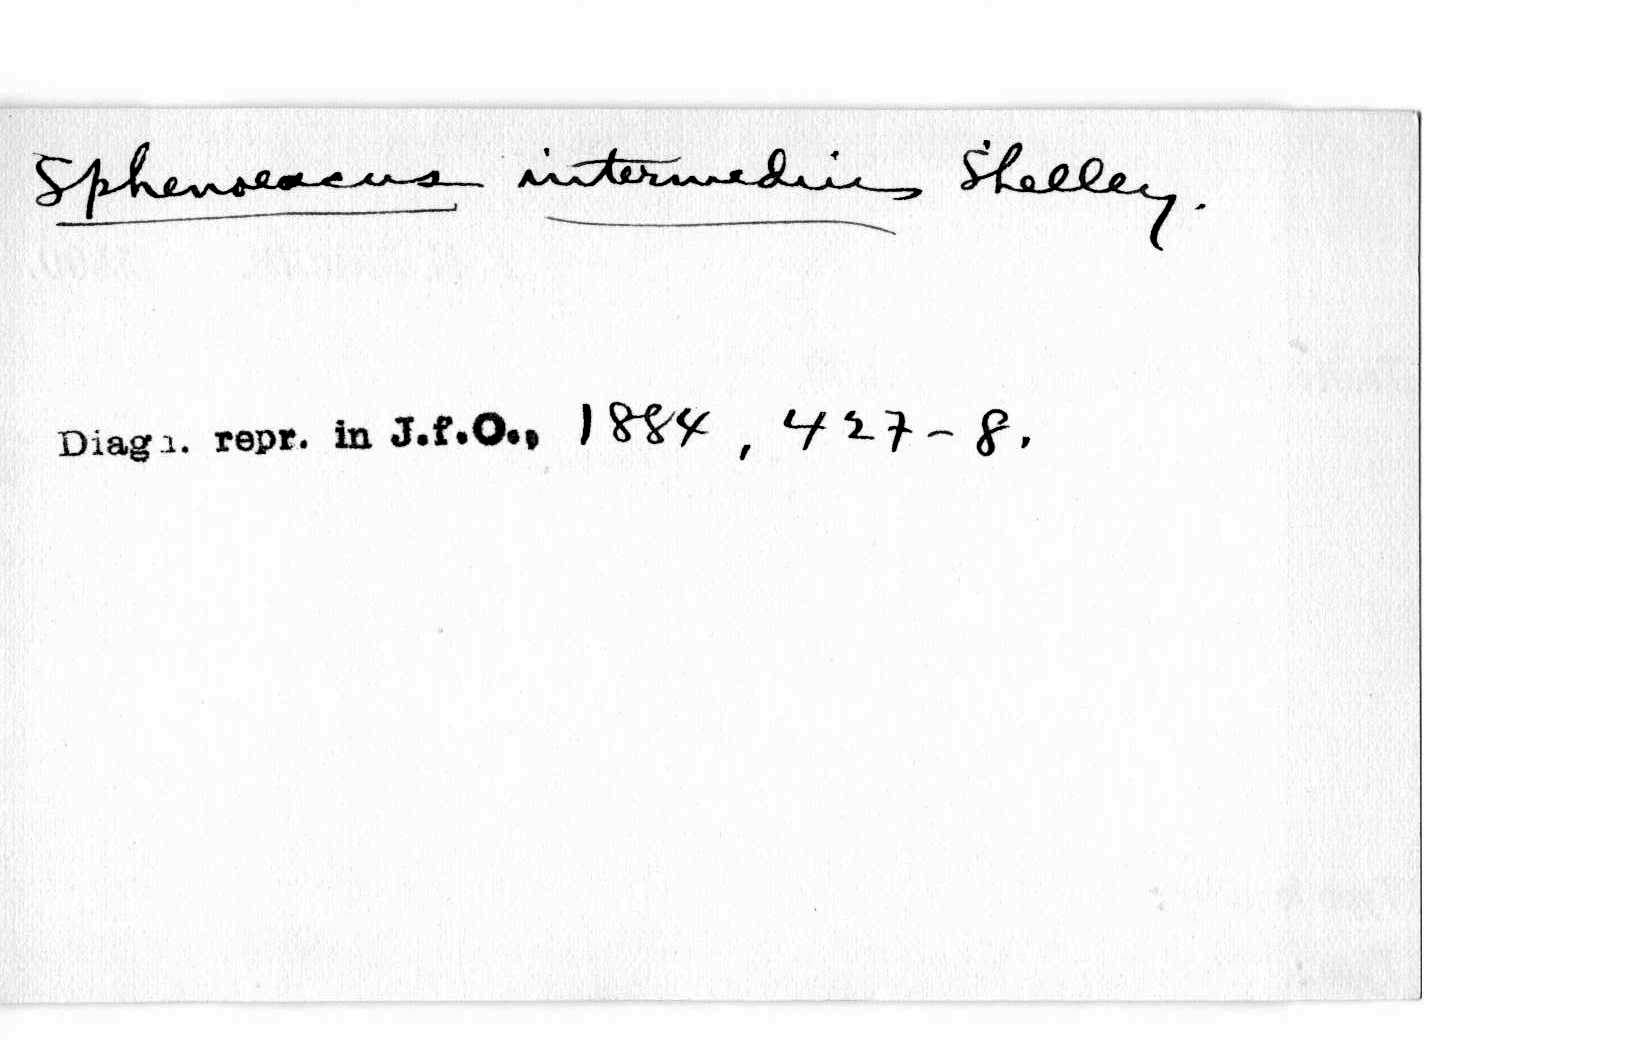 Sphenoeacus intermedius Shelley.
Diagn. repr. in J.f.O., 1884, 427-8.